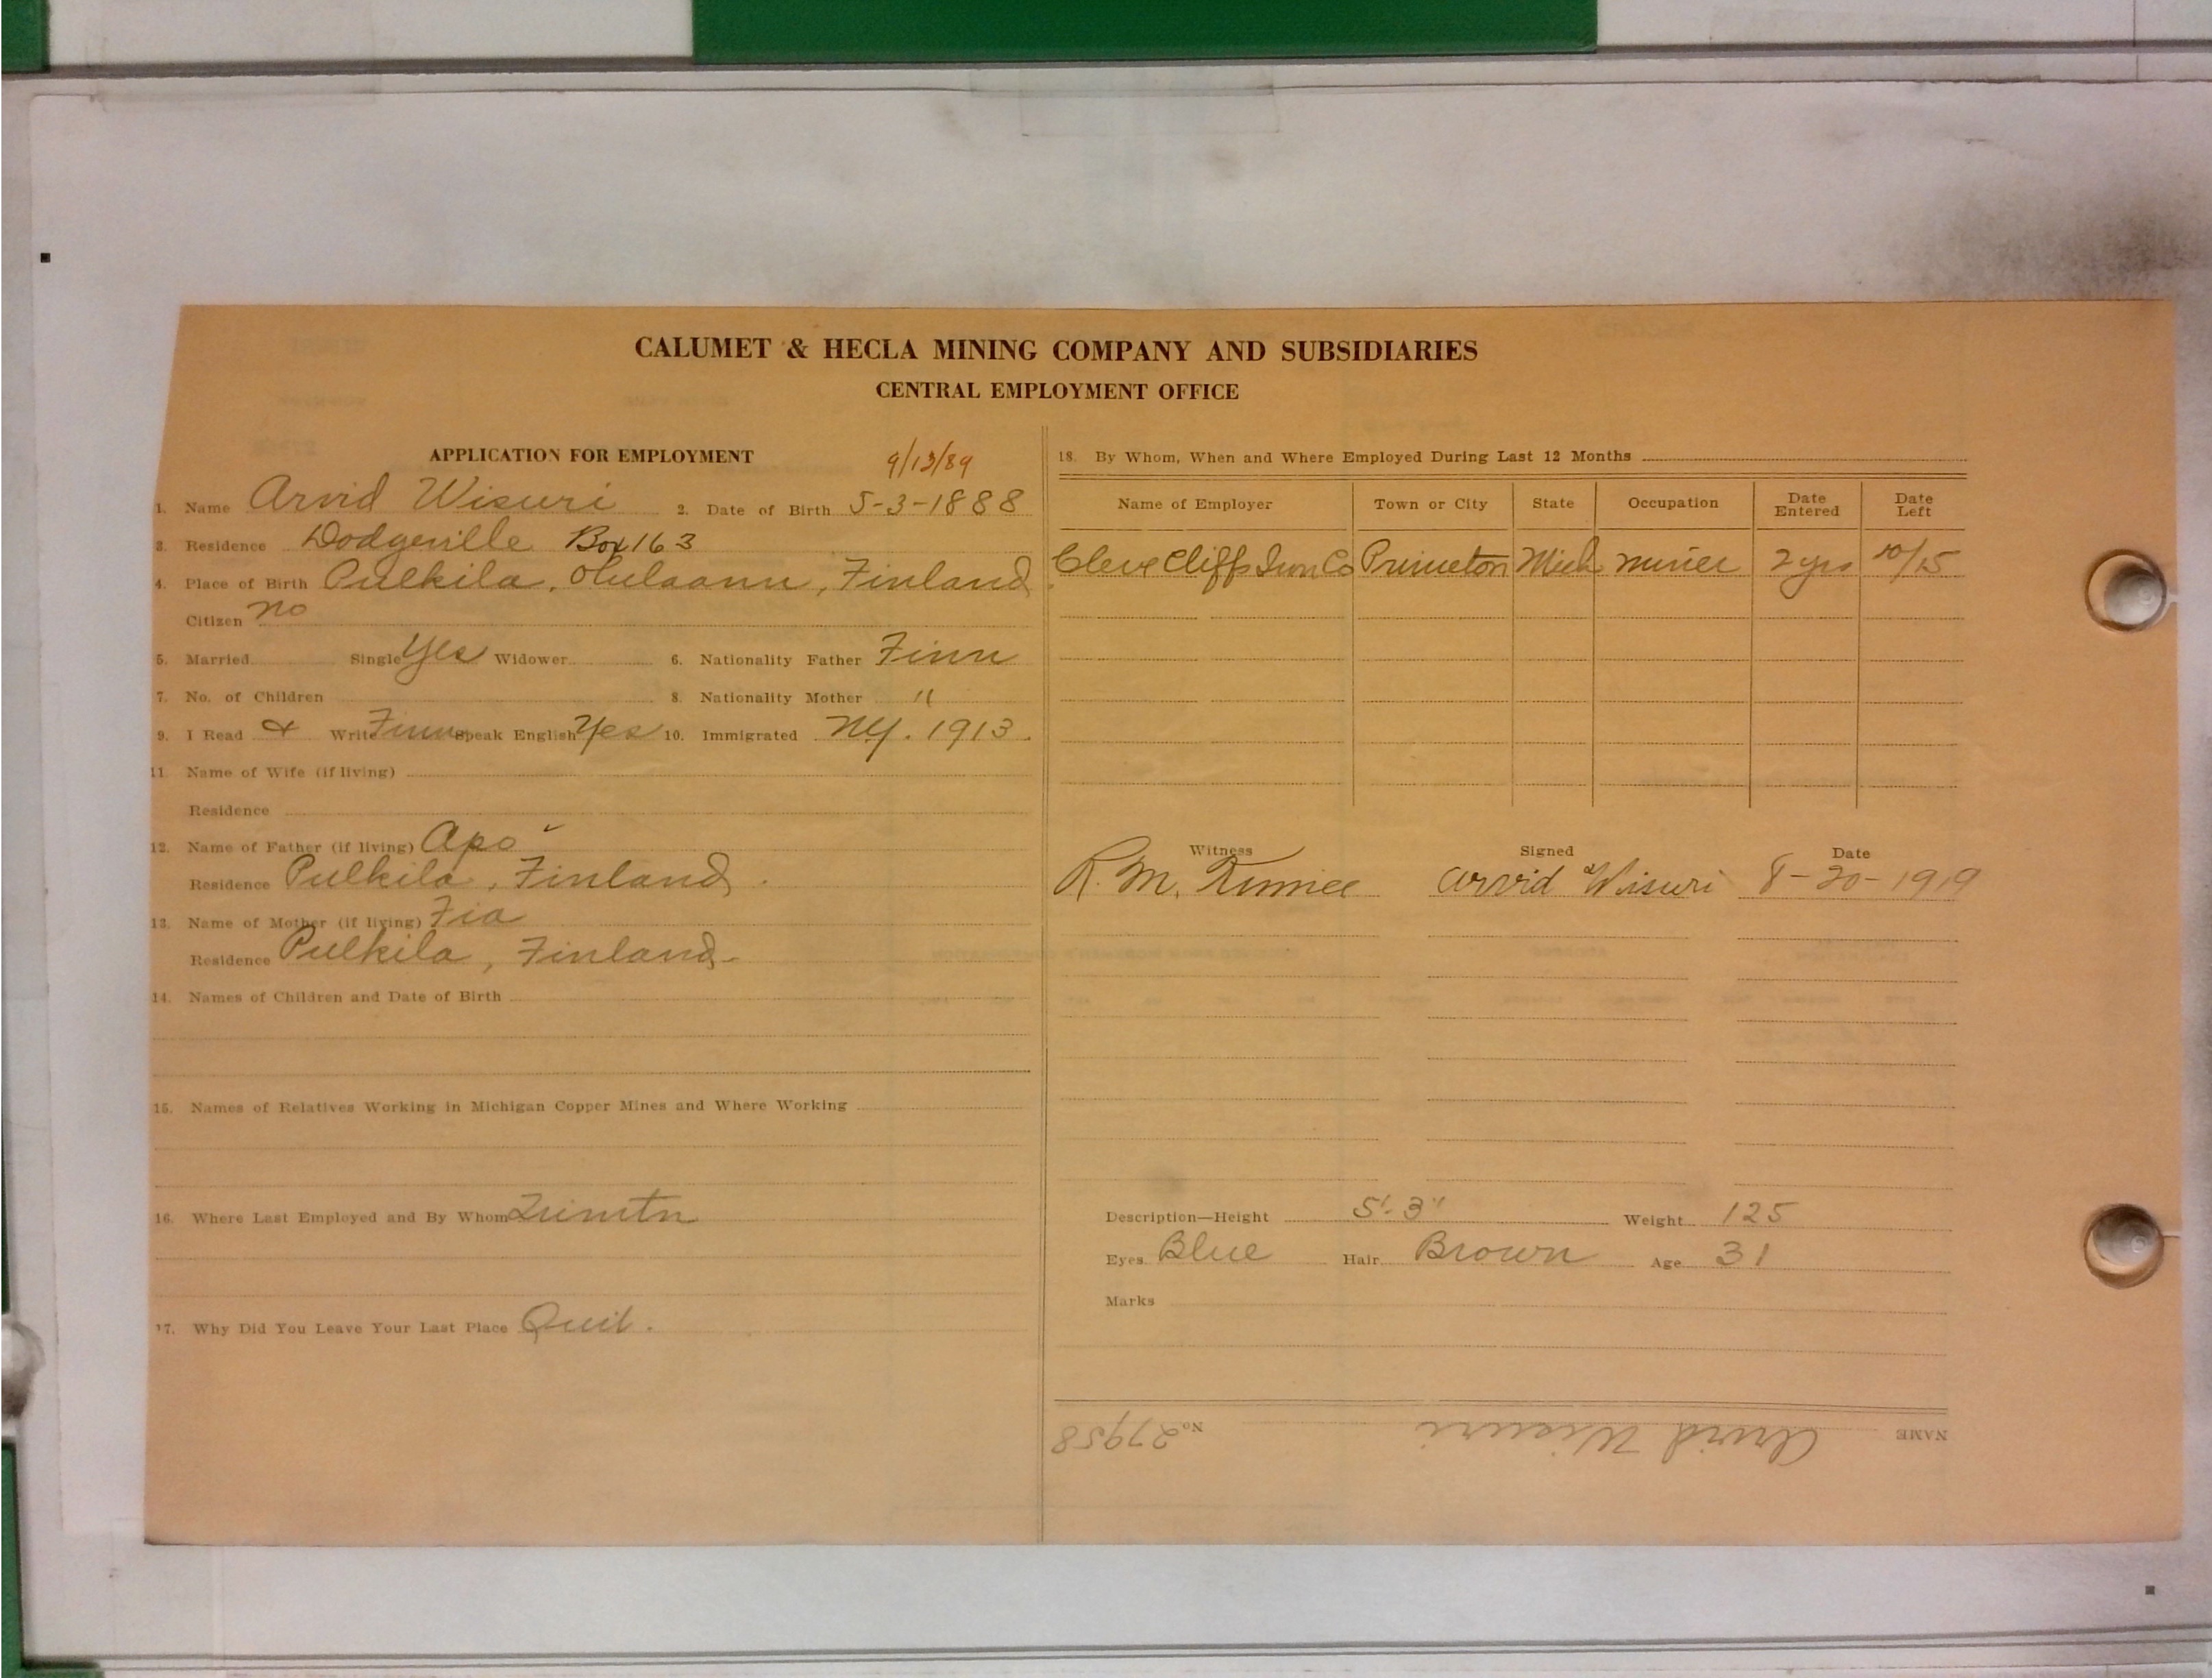 CALUMET & HECLA MINING COMPANY AND SUBSIDIARIES
CENTRAL EMPLOYMENT OFFICE
APPLICATION FOR EMPLOYMENT 9/13/89
1. Name Arvid Wisuri 2. Date of Birth 5-3-1888
3. Residence Dodgeville Box 163
4. Place of Birth Pulkila, Finland
Citizen no
5. Married Single Yes Widower 6. Nationality Father Finn
7. No. of Children 8. Nationality Mother "
9. I Read & Write Finn Speak English Yes 10. Immigrated NY. 1913.
11. Name of Wife (if living)
Residence
12. Name of Father (if living) Apo
Residence Pulkila, Finland.
13. Name of Mother (if living) Fia
Residence Pulkila, Finland.
14. Names of Children and Date of Birth
15. Names of Relatives Working in Michigan Copper Mines and Where Working
16. Where Last Employed and By Whom
17. Why Did You Leave Your Last Place Quit.
18. By Whom, When and Where Employed During Last 12 Months
Name of Employer Town or City State Occupation Date Entered Date Left
Cleve Cliffs Iron Co Princeton Mich miner 2 yrs 10/15
Witness Signed Date
R. M. Arvid Wisuri 8-20-1919
Description—Height 5'-3" Weight 125
Eyes Blue Hair Brown Age 31
Marks
NAME Arvid Wisuri No. 27958